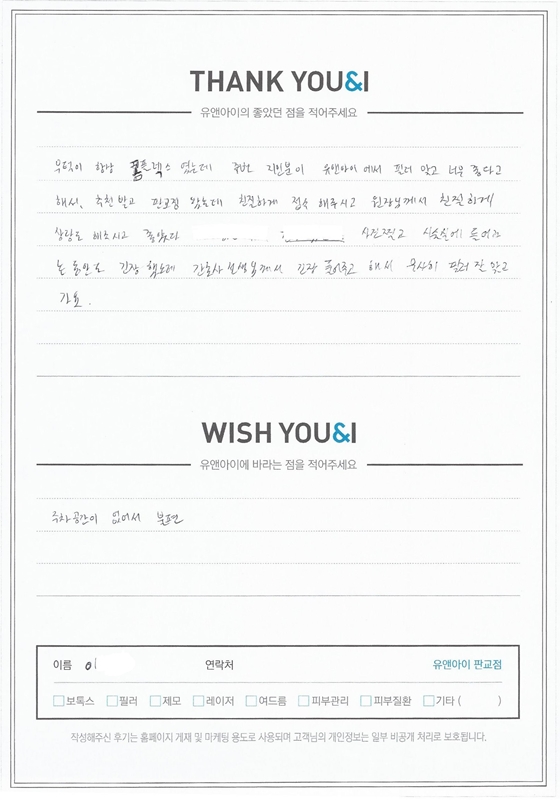 THANK YOU&I
유앤아이의 좋았던 점을 적어주세요
무턱이 항상 콤플렉스 였는데 주변 지인분이 유앤아이에서 필러 맞고 너무 좋다고
해서, 추천받고 판교점 왔는데 친절하게 접수 해주시고 원장님께서 친절하게
상담도 해주시고 좋았다 사진찍고 시술실에 들어가
는 동안도 긴장 했는데 간호사 선생님께서 긴장 풀어주고 해서 무사히 필러 잘 맞고
가요.
WISH YOU&I
유앤아이에 바라는 점을 적어주세요
주차공간이 없어서 불편
이름 이 연락처 유앤아이 판교점
보톡스 필러 제모 레이저 여드름 피부관리 피부질환 기타 ( )
작성해주신 후기는 홈페이지 게재 및 마케팅 용도로 사용되며 고객님의 개인정보는 일부 비공개 처리로 보호됩니다.